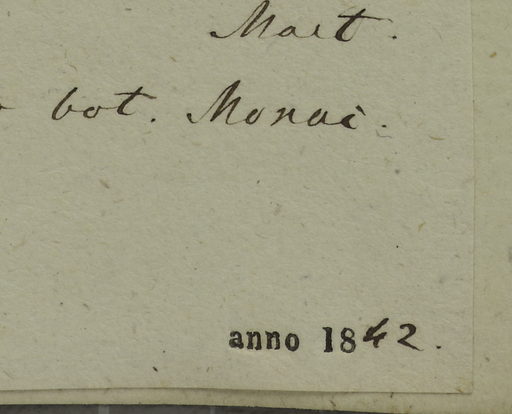 Mart.
bot. Monac.
anno 1842.